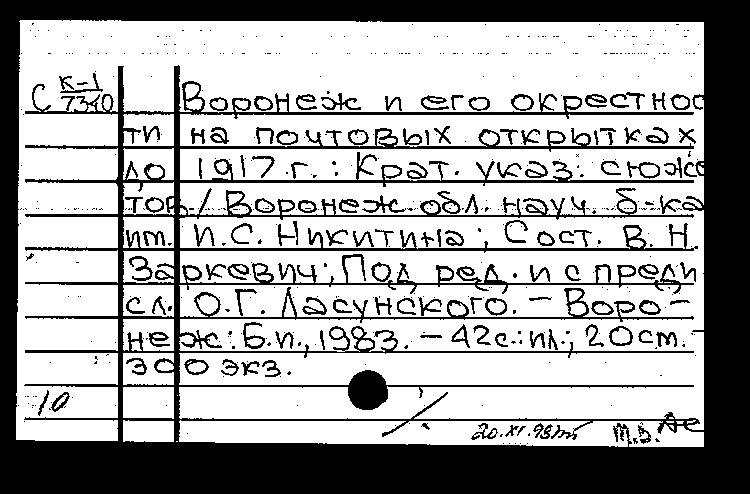 С К-1
7340
Воронеж и его окрестнос
ти на почтовых открытках
до 1917 г. : Крат. указ. сюже
тов / Воронеж. обл. науч. б-ка
им. И.С. Никитина ; Сост. В. Н.
Заркевич ; Под ред. и с преди
сл. О.Г. Ласунского. – Воро–
неж : Б.и., 1983. – 42с.: ил.; 20см. –
300 экз.
10
20.XI.98